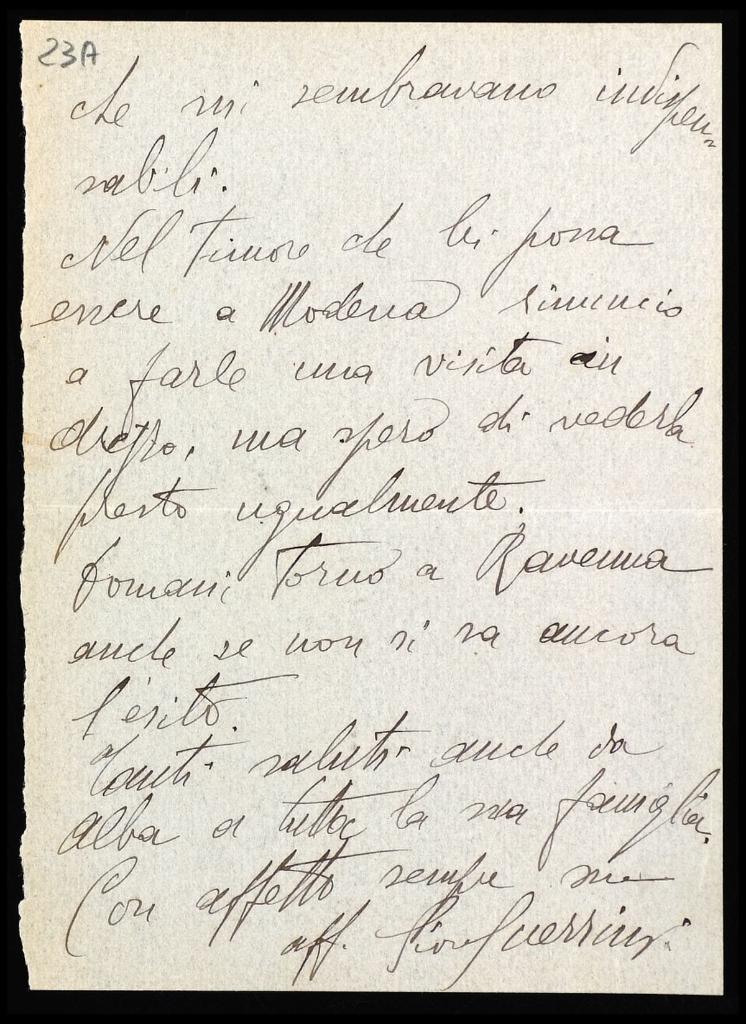 23A
che mi sembravano indispen=
sabili.
Nel timore che lei possa
essere a Modena rinuncio
a farle una visita in
ma spero di vederla
presto ugualmente.
Domani torno a Ravenna
anche se non si sa ancora
l'esito.
Tanti saluti anche da
Alba a tutta la sua famiglia.
Con affetto sempre sua
aff. Guerrini